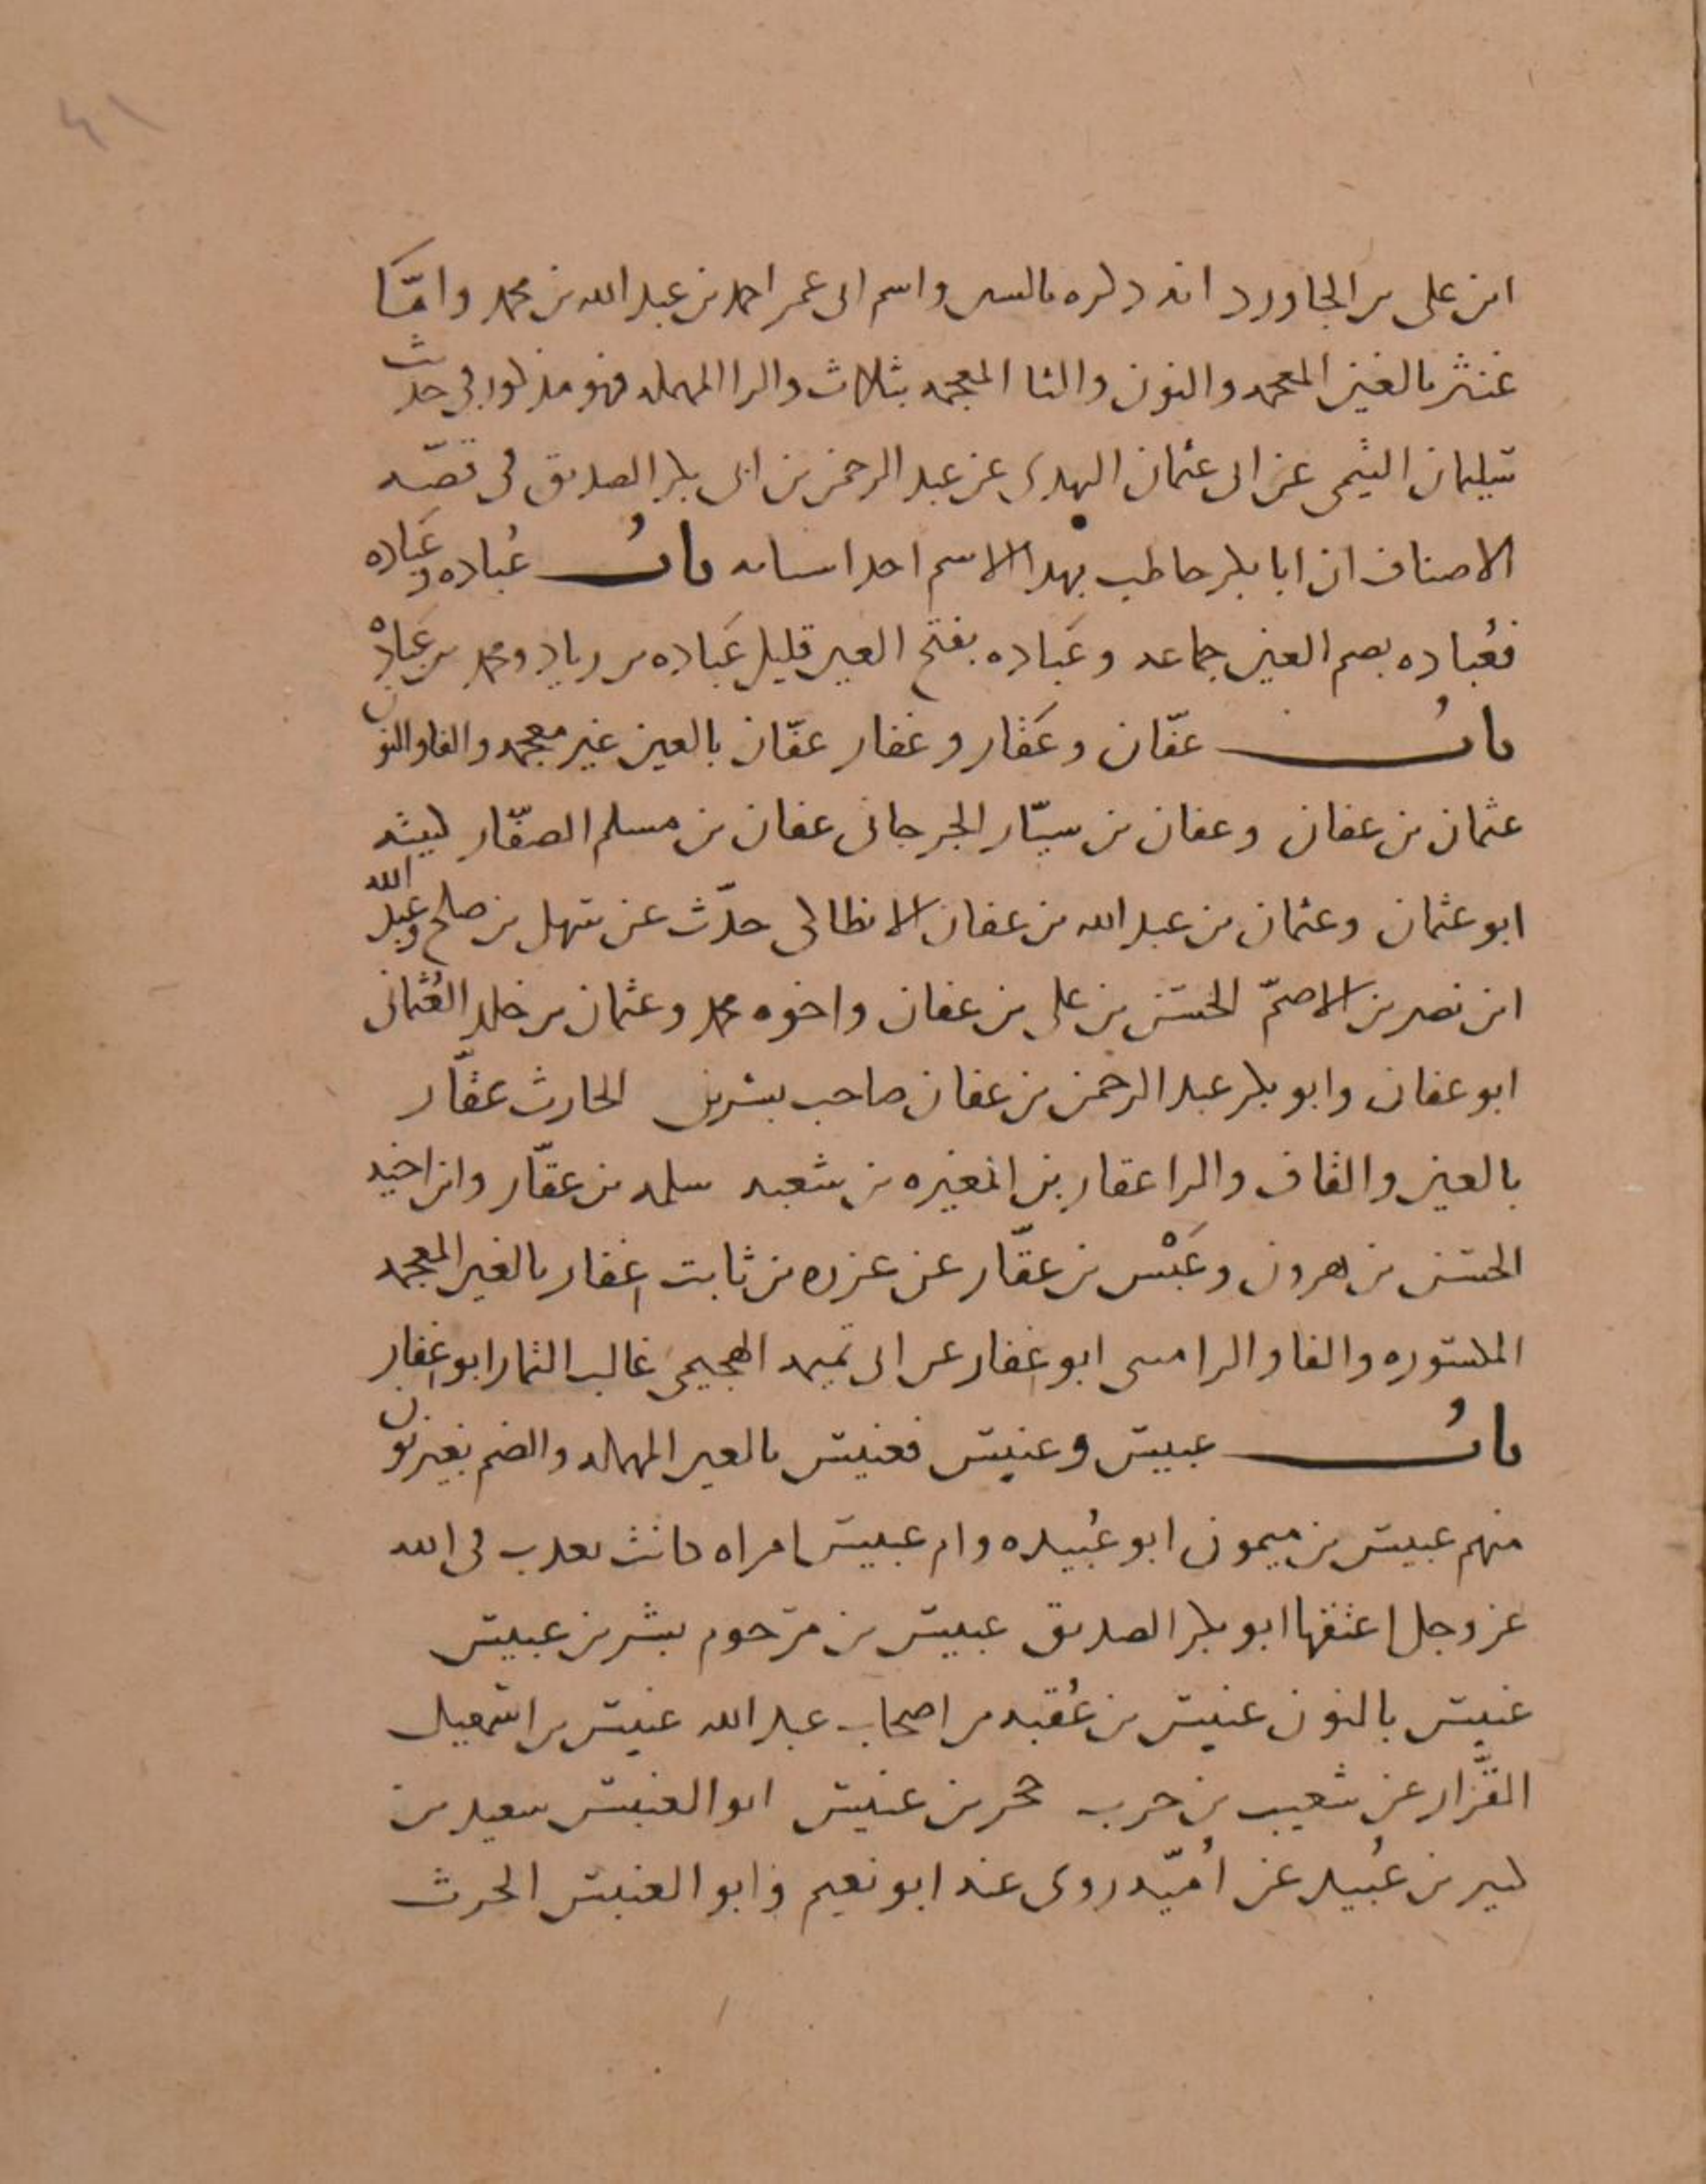 ٤١
ابن على بن الجاورد انه ذكره بالسن واسم ابى عمر احمد بن عبد الله بن محمد وامّا
غنثر بالغين المعجمه والنون والثا المعجمه بثلاث والرا المهمله فهو مذكور فى حديث
سليمان التيمى عن ابى عثمان النهدى عن عبد الرحمن بن ابى بكر الصديق فى قصّه
الاضياف ان ابا بكر خاطب بهذا الاسم احد انسابه باب عُباده وعَباده
فعُباده بضم العين جماعه وعَباده بفتح العين قليل عَباده بن زياد ومحمد بن عَبادْه
باب عفّان وعَقار وغفار عفّان بالعين غير معجمه والفا والنون
عثمان بن عفان وعفان بن سيّار الجرجانى عفان بن مسلم الصفّار كنيته
ابو عثمان وعثمان بن عبد الله بن عفان الانطاكى حدّث عن سهل بن صالح وعبد الله
ابن نصر بن الاصمّ الحسن بن على بن عفان واخوه محمد وعثمان بن خلد العُثمانى
ابو عفان وابو بكر عبد الرحمن بن عفان صاحب بشر بن الحارث عقّار
بالعين والقاف والرا عقار بن المغيره بن شعبه سلمه بن عقّار وابن اخيه
الحسن بن هرون وعَبْس بن عقّار عن عزره بن ثابت غِفار بالغين المعجمه
المكسوره والفا والرا مثنى ابو غِفار عن ابى تميمه الهجيمى غالب التمار ابو غِفار
باب عبيس وعنبس فعبيس بالعين المهمله والضم بغير نون
منهم عبيس بن ميمون ابو عُبيده وام عبيس امراه كانت تعذب فى الله
عز وجل اعتقها ابو بكر الصديق عبيس بن مرحوم بشر بن عبيس
عنبس بالنون عنبس بن عُقبه من اصحاب عبد الله عنبس بن اسمعيل
القزّاز عن شعيب بن حرب حجر بن عنبس ابو العنبس سعيد بن
كثير بن عُبيد عن اُميّه روى عنه ابو نعيم وابو العنبس الحرث